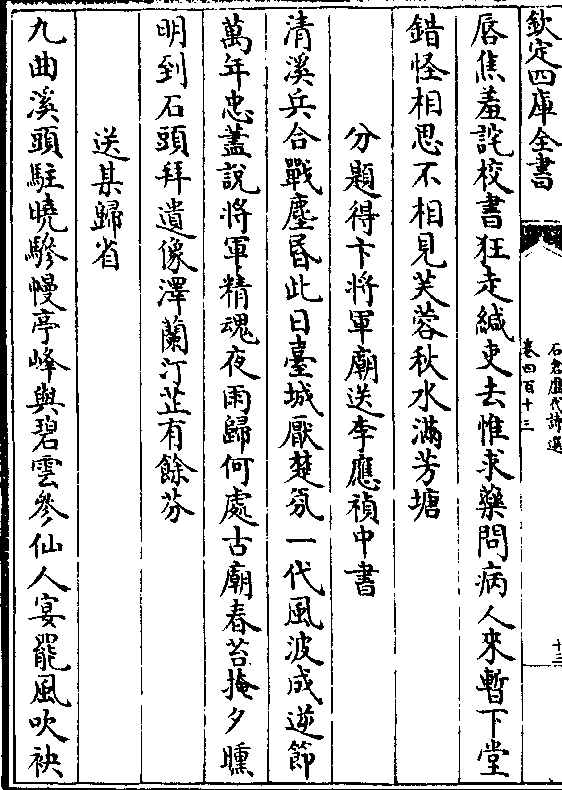 欽定四庫全書
石倉歷代詩選
卷四百十三
十三
唇焦羞詫校書狂走緘吏去惟求藥問病人來暫下堂
錯怪相思不相見芙蓉秋水滿芳塘
分題得卞將軍廟送李應禎中書
清溪兵合戰塵昏此日臺城厭楚氛一代風波成逆節
萬年忠藎說將軍精魂夜雨歸何處古廟春苔掩夕曛
明到石頭拜遺像澤蘭汀芷有餘芬
送某歸省
九曲溪頭駐曉驂幔亭峰與碧雲參仙人宴罷風吹袂